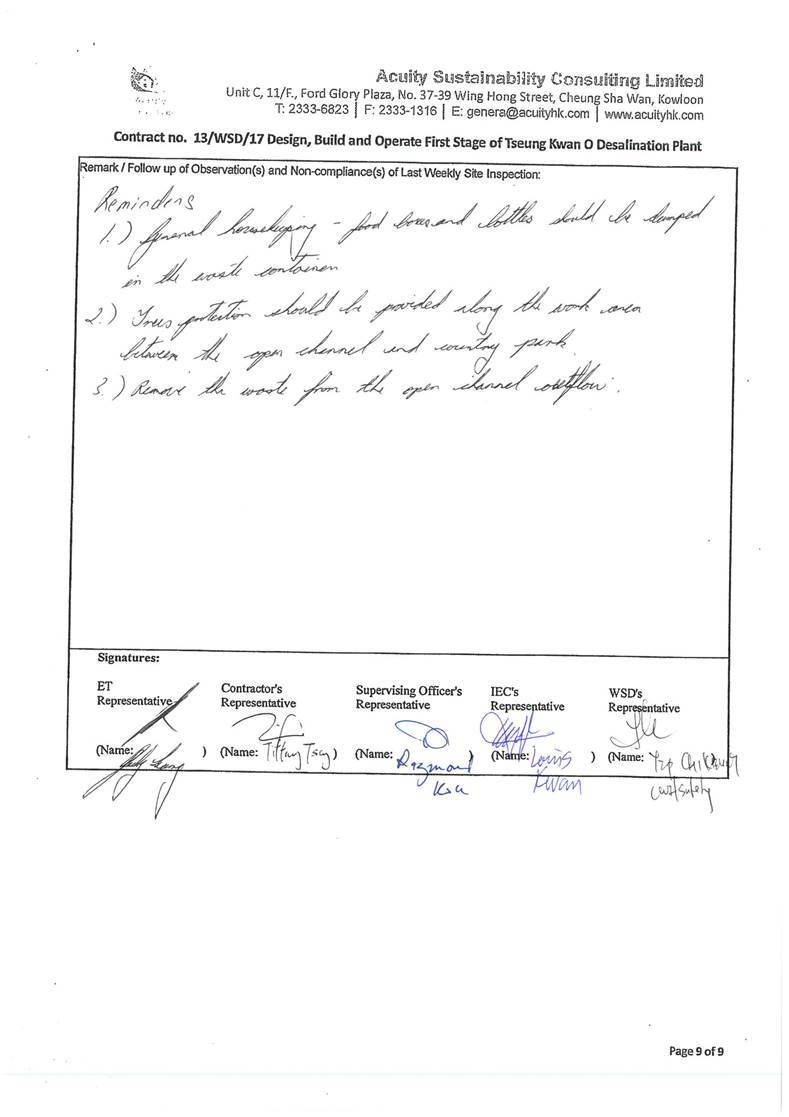 Acuity Sustainability Consulting Limited
Unit C, 11/F., Ford Glory Plaza, No. 37-39 Wing Hong Street, Cheung Sha Wan, Kowloon
T: 2333-6823 | F: 2333-1316 | E: genera@acuityhk.com | www.acuityhk.com
Contract no. 13/WSD/17 Design, Build and Operate First Stage of Tseung Kwan O Desalination Plant
Remark / Follow up of Observation(s) and Non-compliance(s) of Last Weekly Site Inspection:
Reminders
1.) General housekeeping - food boxes and bottles should be dumped
in the waste container
2.) Trees protection should be provided along the work area
between the open channel and country park.
3.) Remove the waste from the open channel outflow.
Signatures:
ET Representative
Contractor's Representative
Supervising Officer's Representative
IEC's Representative
WSD's Representative
(Name: )
(Name: Tiffany )
(Name: Raymond )
(Name: Louis Kwan )
(Name: Yip
Page 9 of 9